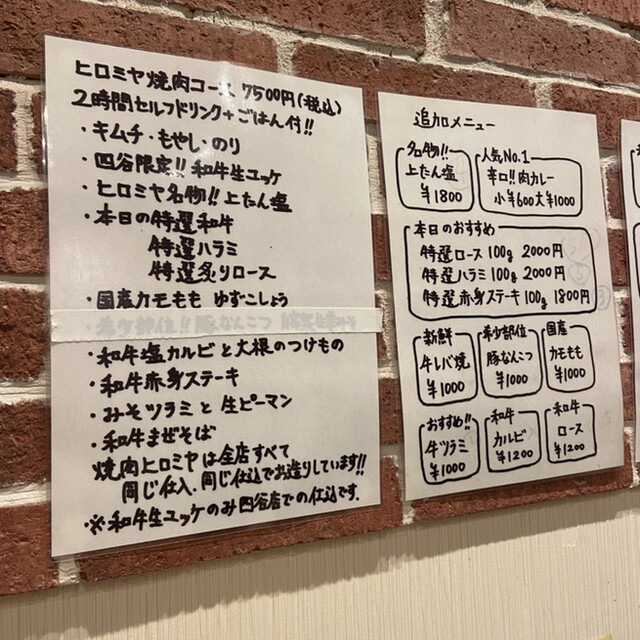 ヒロミヤ焼肉コース 7500円(税込)
2時間セルフドリンク+ごはん付!!
・キムチ・もやし・のり
・四谷限定!! 和牛生ユッケ
・ヒロミヤ名物!! 上たん塩
・本日の特選和牛
特選ハラミ
特選炙りロース
・国産カモもも ゆずこしょう
・和牛塩カルビと大根のつけもの
・和牛赤身ステーキ
・みそツラミと生ピーマン
・和牛まぜそば
焼肉ヒロミヤは全店すべて
同じ仕入、同じ仕込でお造りしています!!
・※和牛生ユッケのみ四谷店での仕込です.
追加メニュー
名物!!
上たん塩
¥1800
人気No.1
辛口!! 肉カレー
小¥600大¥1000
本日のおすすめ
特選ロース 100g 2000円
特選ハラミ 100g 2000円
特選赤身ステーキ 100g 1800円
新鮮
牛レバ焼
¥1000
希少部位
豚なんこつ
¥1000
国産
カモもも
¥1000
おすすめ!!
牛ツラミ
¥1000
和牛
カルビ
¥1200
和牛
ロース
¥1200